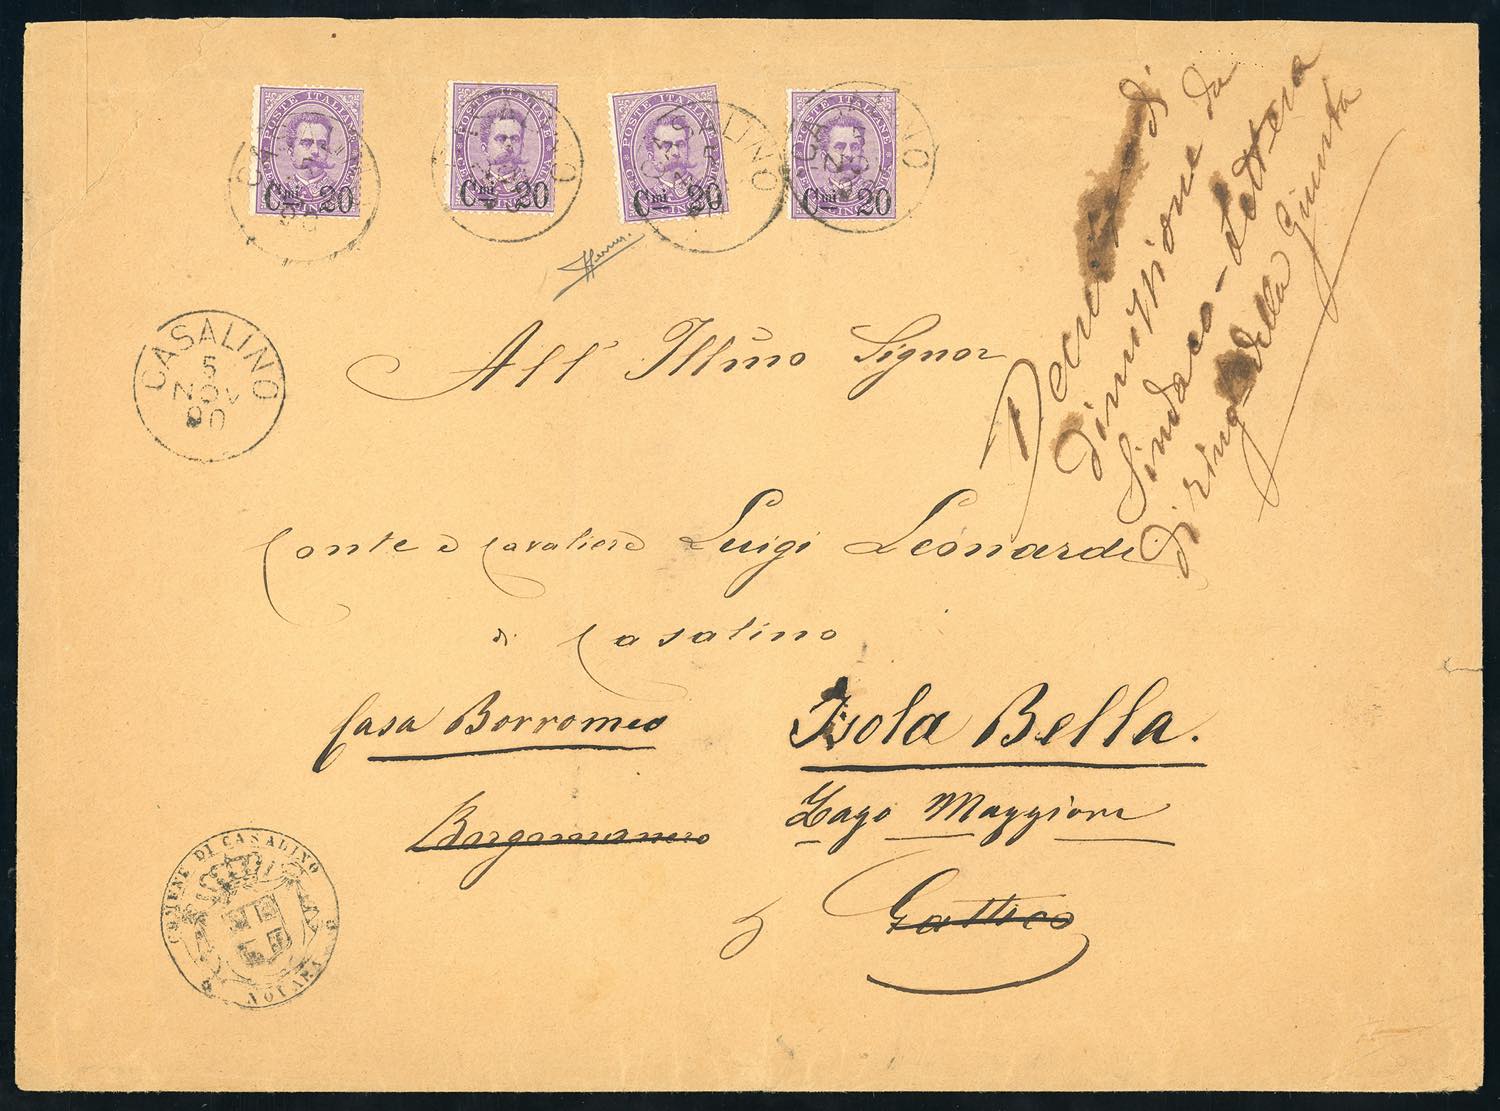 POSTE ITALIANE
Cmi 20
POSTE ITALIANE
Cmi 20
POSTE ITALIANE
Cmi 20
POSTE ITALIANE
Cmi 20
CASALINO
5
NOV
90
Decreto di
dimissione da
Sindaco - lettera
di ring. della Giunta
All' Illmo Signor
Conte e Cavaliere Luigi Leonardi
di Casalino
Casa Borromeo Isola Bella.
Borgomanero Lago Maggiore
Gattico
COMUNE DI CASALINO
NOVARA